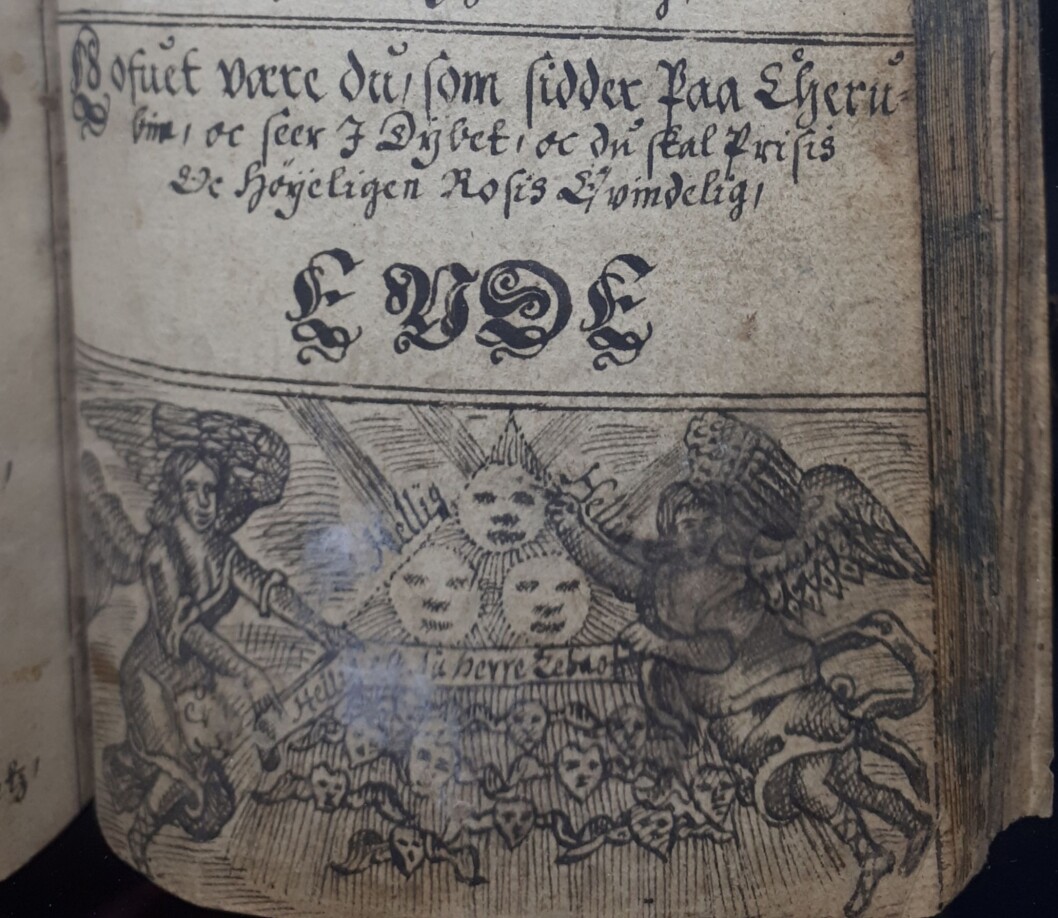 Lofuet være du, som sidder Paa Cheru-
bim, oc seer I Dybet, oc du skal Prisis
Oc Høyeligen Rosis Evindelig,
ENDE
Hellig
du Herre Zebaot